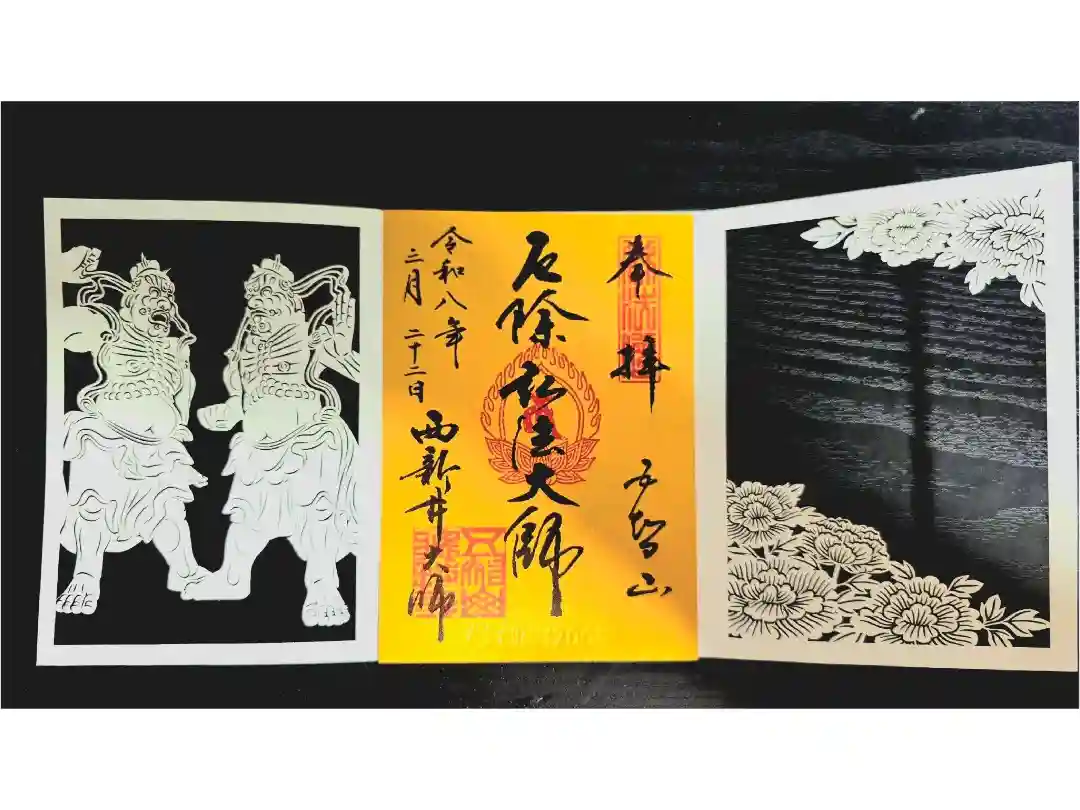 奉拝
五智山
厄除弘法大師
令和八年
三月二十二日
西新井大師